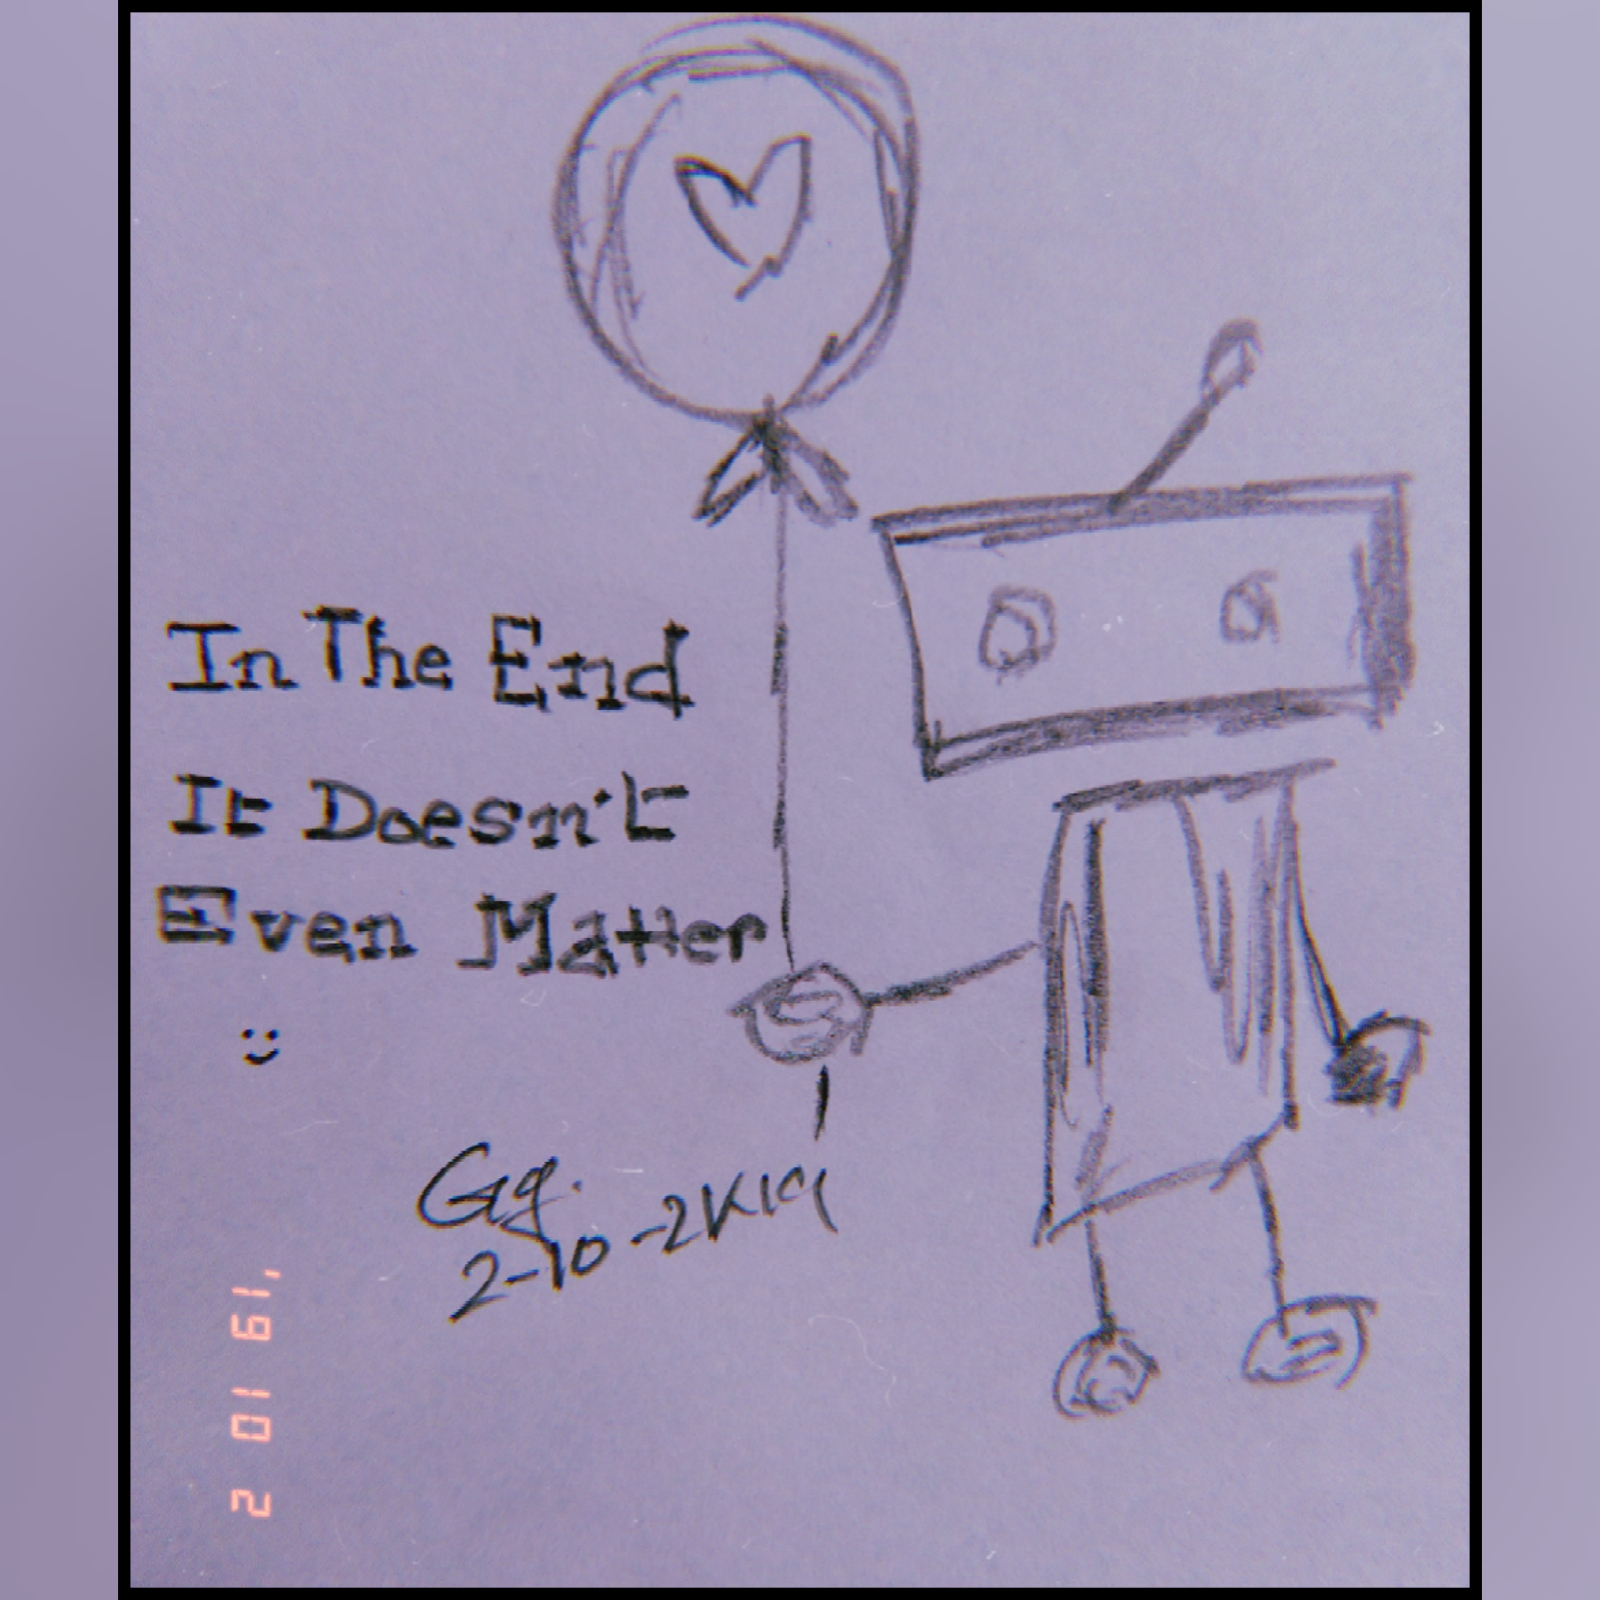 In The End
It Doesn't
Even Matter
Gg.
2-10-2K19
2 10 '19